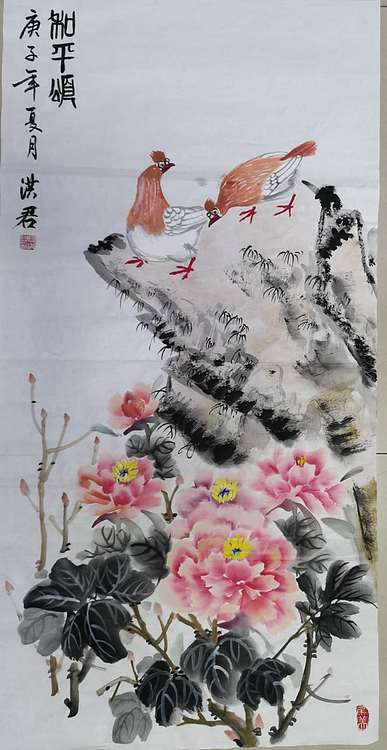 和平颂
庚子年夏月
洪君